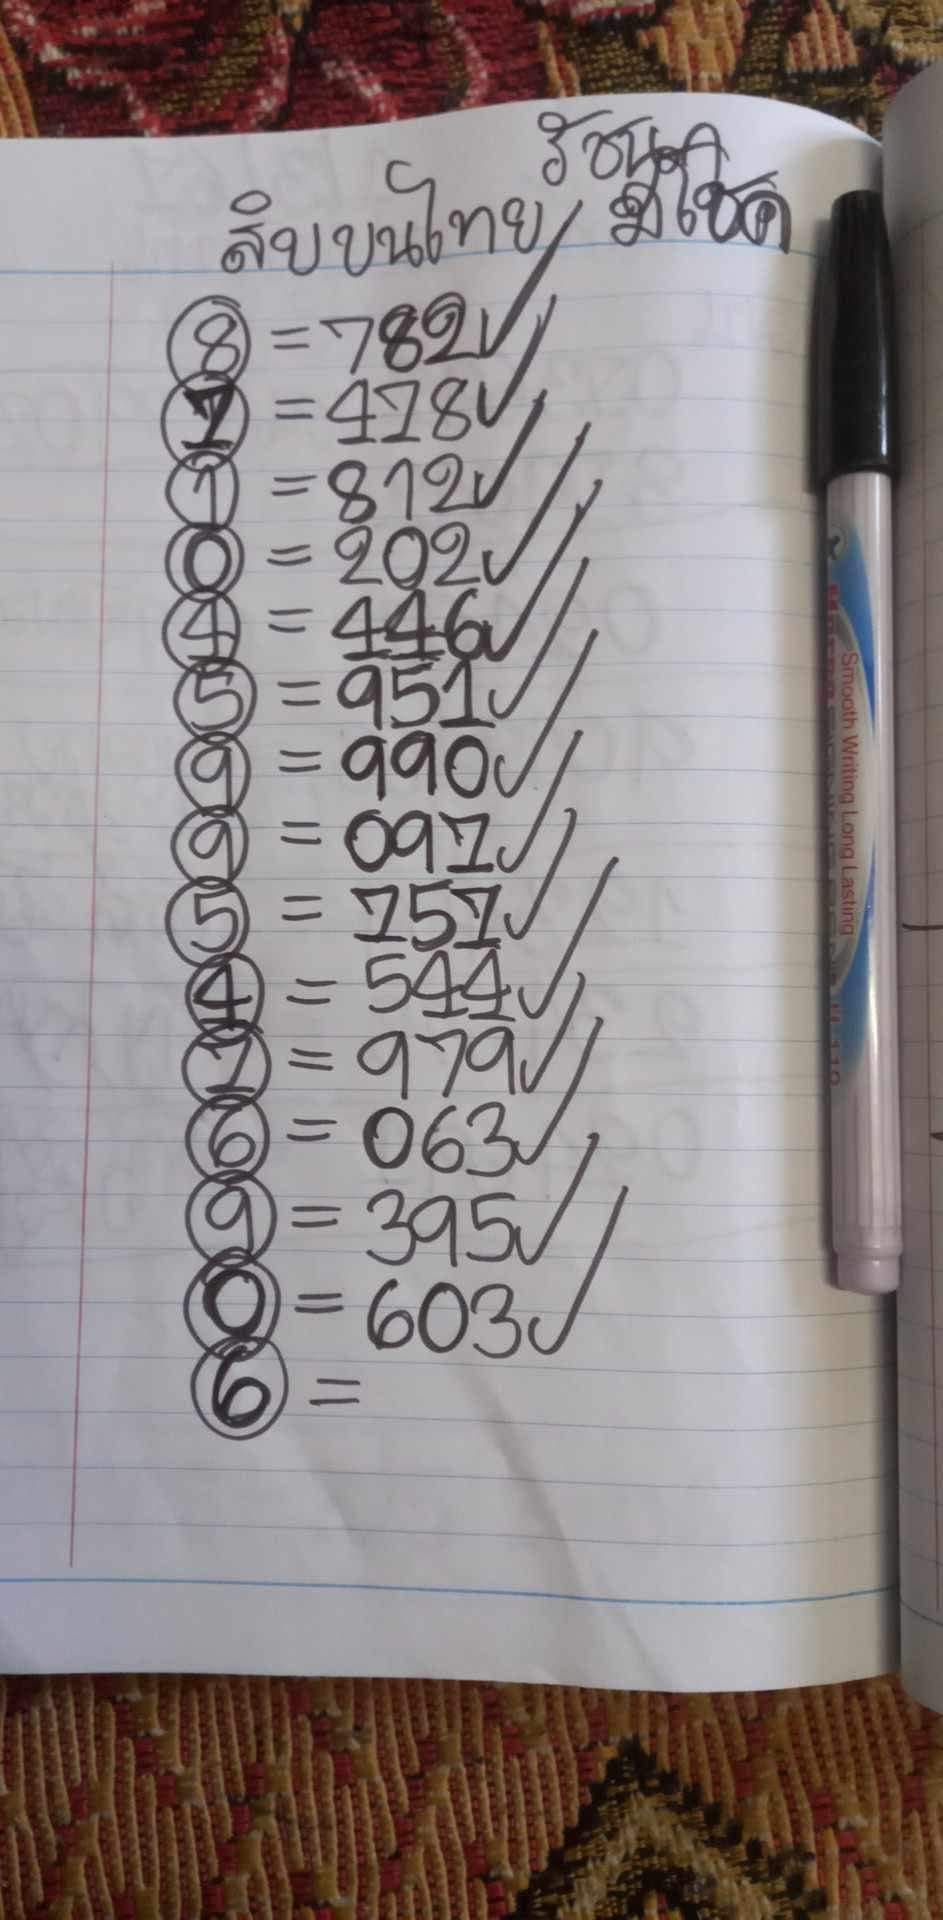 รัชนก
มีโชค
สิบบนไทย
8 = 782
7 = 478
1 = 812
0 = 202
4 = 446
5 = 951
9 = 990
9 = 097
5 = 757
4 = 544
7 = 979
6 = 063
9 = 395
0 = 603
6 =
Smooth Writing Long Lasting